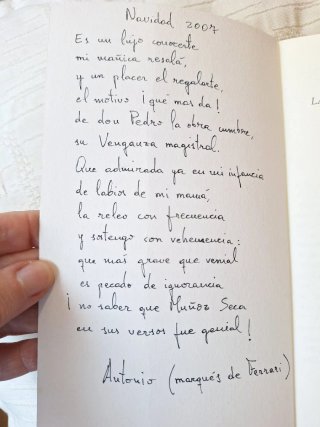 Navidad 2007
Es un lujo conocerte
mi mañica resalá,
y un placer el regalarte,
el motivo ¡qué mas da!
de don Pedro la obra cumbre,
su Venganza magistral.
Que admirada ya en mi infancia
de labios de mi mamá,
la releo con frecuencia
y sostengo con vehemencia:
que más grave que venial
es pecado de ignorancia
¡no saber que Muñoz Seca
en sus versos fue genial!
Antonio (marqués de Ferrari)